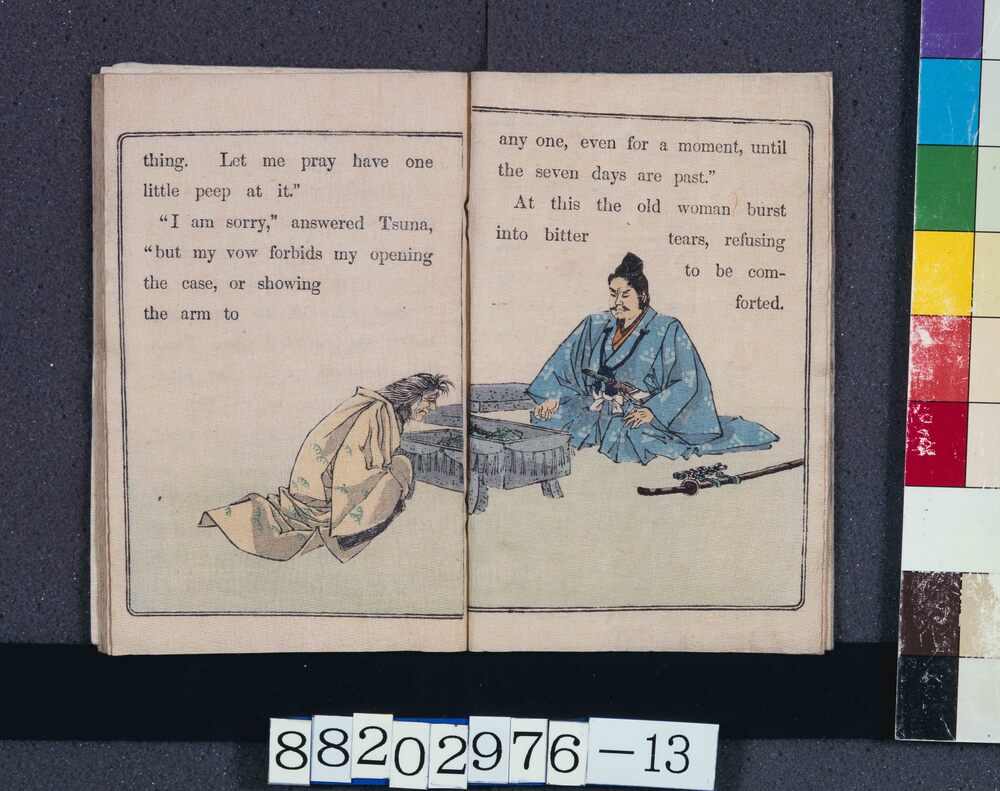 thing. Let me pray have one
little peep at it.”
“I am sorry,” answered Tsuna,
“but my vow forbids my opening
the case, or showing
the arm to
any one, even for a moment, until
the seven days are past.”
At this the old woman burst
into bitter tears, refusing
to be com-
forted.
88202976-13